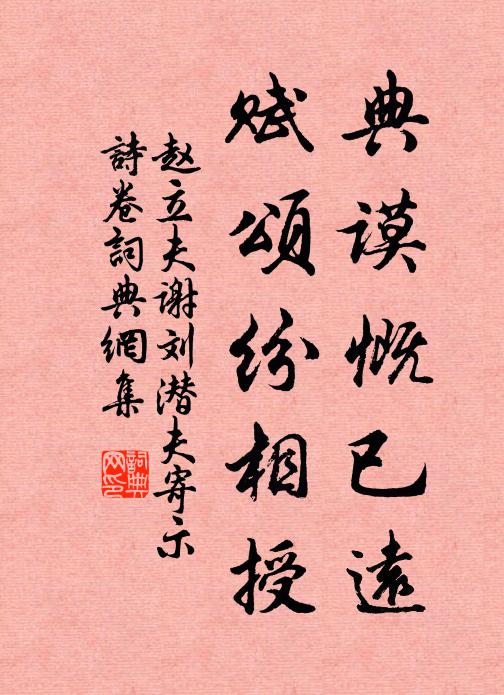 典谟慨已遠
赋頌紛相授
赵立夫谢刘潜夫寄示
詩卷詞典網集
詞典網印